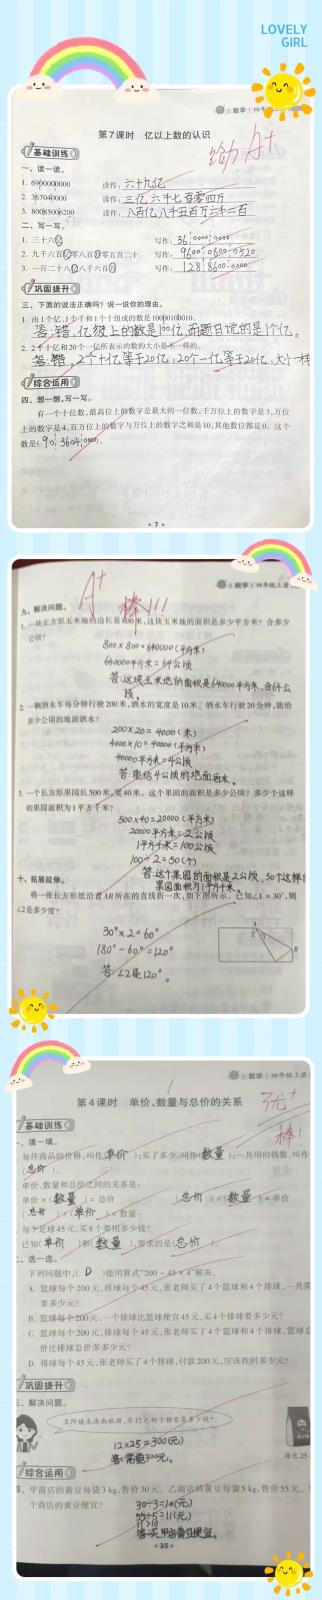 LOVELY
GIRL
||数学|四年级上册
第7课时 亿以上数的认识
给力 A+
基础训练
一、读一读。
1. 6900000000 读作: 六十九亿
2. 367040000 读作: 三亿六千七百零四万
3. 80085006200 读作: 八百亿八千五百万六千二百
二、写一写。
1. 三十六亿 写作: 3600000000
2. 九千六百亿零八百万零五百二十 写作: 960008000520
3. 一百二十八亿八千六百万 写作: 12886000000
巩固提升
三、下面的说法正确吗?说一说你的理由。
1. 由1个亿、1个千和1个十组成的数是1000010010.
答:错,亿级上的数是100亿,而题目说的是1个亿。
2. 2个十亿和20个一亿所表示的数的大小是不一样的。
答:错,2个十亿等于20亿,20个一亿等于20亿,大小一样
综合运用
四、想一想,写一写。
有一个十位数,最高位上的数字是最大的一位数,千万位上的数字是3,万位
上的数字是4,百万位上的数字与万位上的数字之和是10,其他数位都是0。这个
数是(9036040000)。
7
||数学|四年级上册
A+ 棒!!!
九、解决问题。
1. 一块正方形玉米地的边长是800米,这块玉米地的面积是多少平方米?合多少
公顷?
800×800=640000(平方米)
640000平方米=64公顷
答:这块玉米地的面积是640000平方米,合64公
顷。
2. 一辆洒水车每分钟行驶200米,洒水的宽度是10米。洒水车行驶20分钟,能给
多少公顷的地面洒水?
200×20=4000(米)
4000×10=40000(平方米)
40000平方米=4公顷
答:能给4公顷的地面洒水。
3. 一个长方形果园长500米,宽40米。这个果园的面积是多少公顷?多少个这样
的果园面积为1平方千米?
500×40=20000(平方米)
20000平方米=2公顷
1平方千米=100公顷
100÷2=50(个)
答:这个果园的面积是2公顷,50个这样的
果园面积为1平方千米。
十、拓展延伸。
将一张长方形纸沿着AB所在的直线折一次,如下图所示。已知∠1=30°,则
∠2是多少度?
30°×2=60°
180°-60°=120°
答:∠2是120°。
||数学|四年级上册
第4课时 单价、数量与总价的关系
优+
棒!
基础训练
一、填一填。
每件商品的价格,叫作(单价);买了多少,叫作(数量);一共用的钱数,叫作
(总价)。
单价、数量和总价之间的关系是:
单价×(数量)=总价 (总价)÷(数量)=单价
(总价)÷(单价)=数量
每个足球45元,买8个要用多少钱?
已知(单价)和(数量),要求的是(总价)。
二、选一选。
下列问题中,(D)能用算式"200-45×4"解决。
A. 篮球每个200元,排球每个45元,张老师买了4个篮球和4个排球,一共需
要多少元?
B. 篮球每个200元,一个排球比篮球便宜45元,买4个排球要多少元?
C. 篮球每个200元,排球每个45元,张老师买了4个篮球和4个排球,篮球总
价比排球总价多多少元?
D. 排球每个45元,张老师买了4个排球,付款200元,应该找回多少元?
巩固提升
三、解决问题。
12×25=300(元)
答:需要300元。
每包25
综合运用
四、甲商店的黄豆每袋3kg,售价30元。乙商店的黄豆每袋5kg,售价55元。
个商店的黄豆便宜?
30÷3=10(元)
55÷5=11(元)
11>10
答:买甲店黄豆便宜。
35